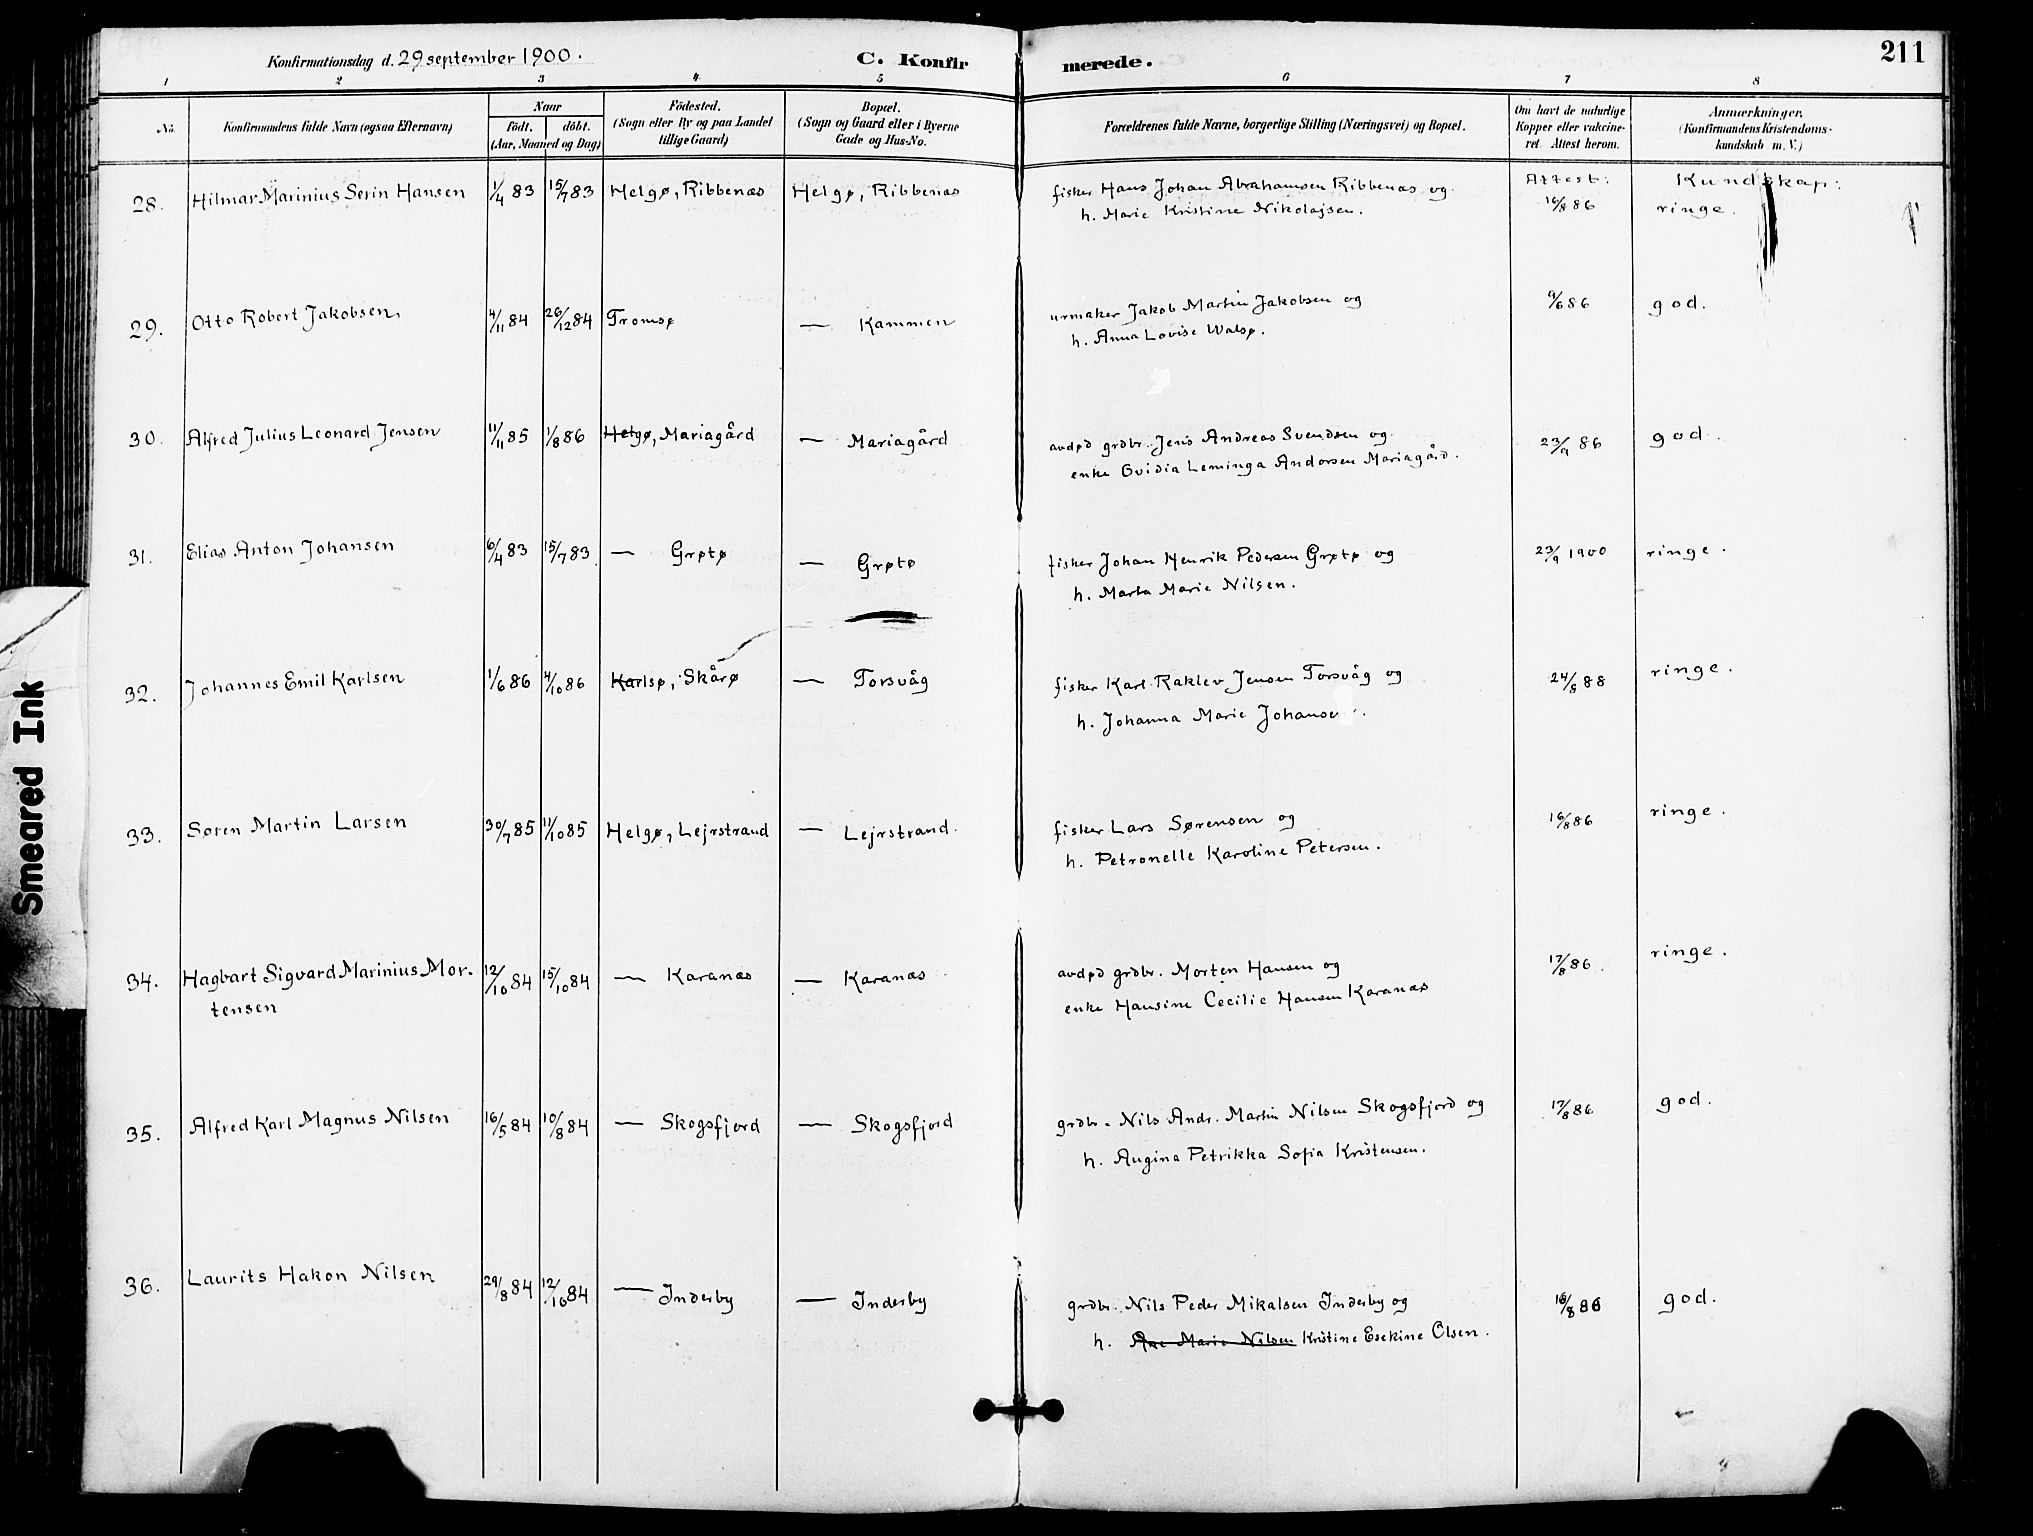 Konfirmationsdag d. 29 september 1900.
C. Konfirmerede.
211
1 2 3 4 5 6 7 8
No.
Konfirmandens fulde Navn (ogsaa Efternavn)
Naar
født. døbt.
(Aar, Maaned og Dag)
Födested.
(Sogn eller By og paa Landet
tillige Gaard)
Bopæl.
(Sogn og Gaard eller i Byerne
Gade og Hus-No.
Forældrenes fulde Navne, borgerlige Stilling (Næringsvei) og Bopæl.
Om havt de naturlige
Kopper eller vakcine-
ret. Attest herom.
Anmærkninger.
(Konfirmandens Kristendoms-
kundskab m. V.)
Attest: Kundskap:
28. Hilmar Marinius Serin Hansen 1/4 83 15/7 83 Helgø, Ribbenæs Helgø, Ribbenæs fisker Hans Johan Abrahamsen Ribbenæs og 16/8 86 ringe.
h. Marie Kristine Nikolajsen.
29. Otto Robert Jakobsen, 4/11 84 26/12 84 Tromsø — Kammen urmaker Jakob Martin Jakobsen og 9/6 86 god.
h. Anna Lovise Walsø.
30. Alfred Julius Leonard Jensen 11/11 85 1/8 86 Helgø, Mariagård — Mariagård avdød grdbr. Jens Andreas Svendsen og 23/9 86 god.
enke Ovidia Leminga Andorsen Mariagård.
31. Elias Anton Johansen 6/4 83 15/7 83 — Grøtø — Grøtø fisker Johan Henrik Pedersen Grøtø og 23/9 1900 ringe.
h. Marta Marie Nilsen.
32. Johannes Emil Karlsen 1/6 86 4/10 86 Karlsø, Skårø — Torsvåg fisker Karl Raklev Jensen Torsvåg og 24/8 88 ringe.
h. Johanna Marie Johansen.
33. Søren Martin Larsen 30/7 85 11/10 85 Helgø, Lejrstrand — Lejrstrand. fisker Lars Sørensen og 16/8 86 ringe.
h. Petronelle Karoline Petersen.
34. Hagbart Sigvard Marinius Mor- 12/10 84 15/10 84 — Karanæs — Karanæs avdød grdbr. Morten Hansen og 17/8 86. ringe.
tensen enke Hansine Cecilie Hansen Karanæs
35. Alfred Karl Magnus Nilsen 16/5 84 10/8 84 — Skogsfjord — Skogsfjord grdbr. Nils Andr. Martin Nilsen Skogsfjord og 17/8 86 god.
h. Augina Petrikka Sofia Kristensen.
36. Laurits Hakon Nilsen 29/8 84 12/10 84 — Inderby — Inderby grdbr. Nils Peder Mikalsen Inderby og 16/8 86 god.
h. Ane Marie Nilsen Kristine Esekine Olsen.
Smeared Ink